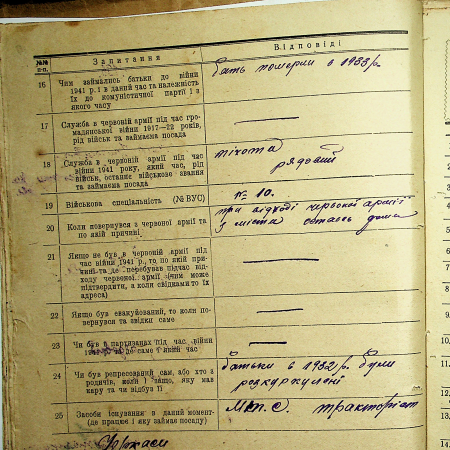 №№ п-п.
Запитання
Відповіді
16
Чим займались батьки до війни
1941 р. і в даний час та належність
їх до комуністичної партії і з
якого часу
бать померли в 1933 р.
17
Служба в червоній армії під час гро-
мадянської війни 1917—22 років,
рід військ та займаєма посада
18
Служба в червоній армії під час
війни 1941 року, який час, рід
військ, останнє військове звання
та займаєма посада
піхота
рядовий
19
Військова спеціальність (№ ВУС)
№ 10.
20
Коли повернувся з червоної армії та
по якій причині
при відході червоної армії
з міста остався дома
21
Якщо не був в червоній армії під
час війни 1941 р., то по якій при-
чині та де перебував підчас від-
ходу червоної армії (чим може
підтвердити, а коли свідками то їх
адреса)
22
Якщо був евакуйований, то коли по-
вернувся та звідки саме
23
Чи був в партизанах під час війни
та де саме і який час
24
Чи був репресований сам, або хто з
родичів, коли і защо, яку мав
кару та чи відбув її
батьки в 1932 р. були
розкуркулені
25
Засоби існування в даний момент-
(де працює і яку займає посаду)
М.т.с. тракторіст